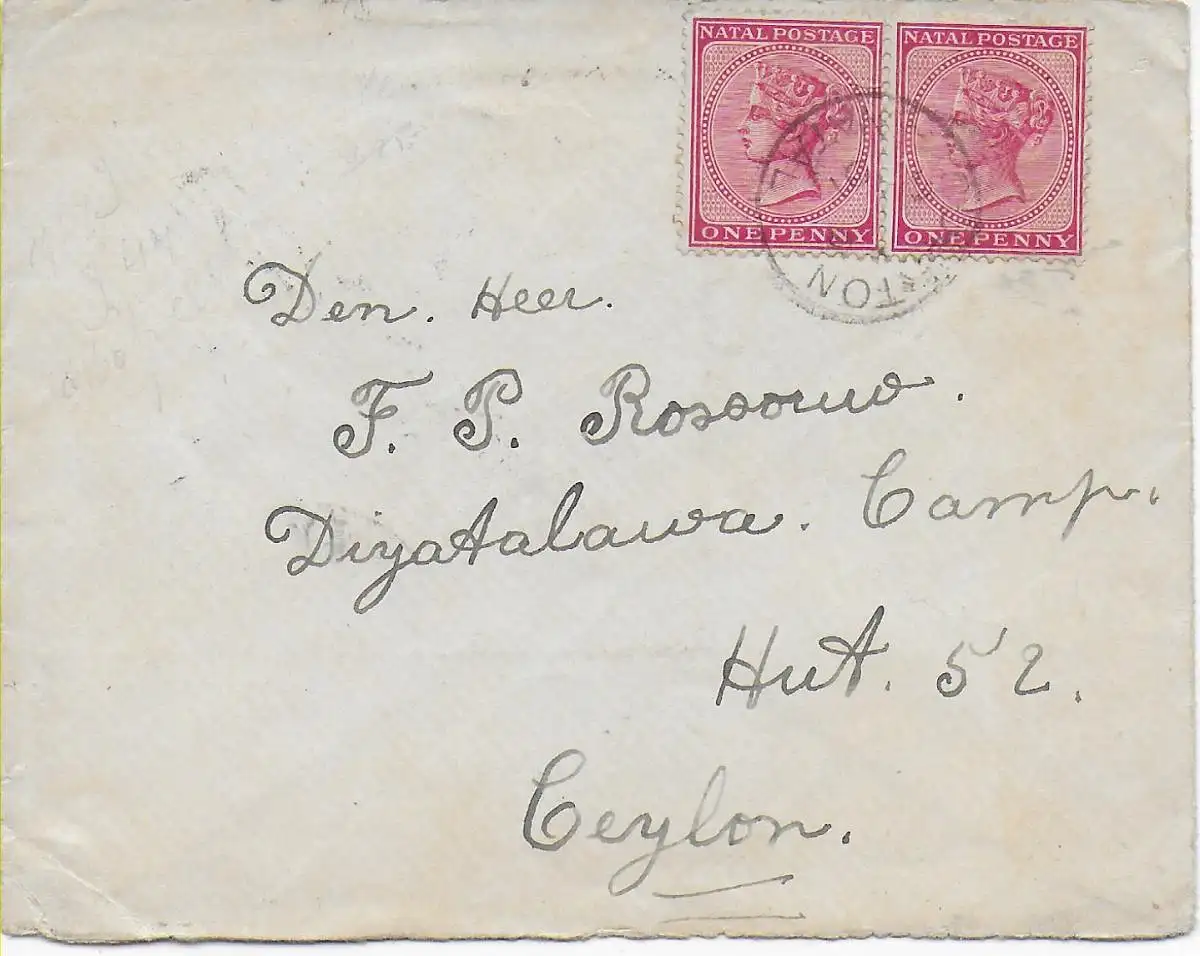 NATAL POSTAGE NATAL POSTAGE
ONE PENNY ONE PENNY
Den. Heer.
F. P. Rossouw.
Diyatalawa. Camp.
Hut. 52.
Ceylon.